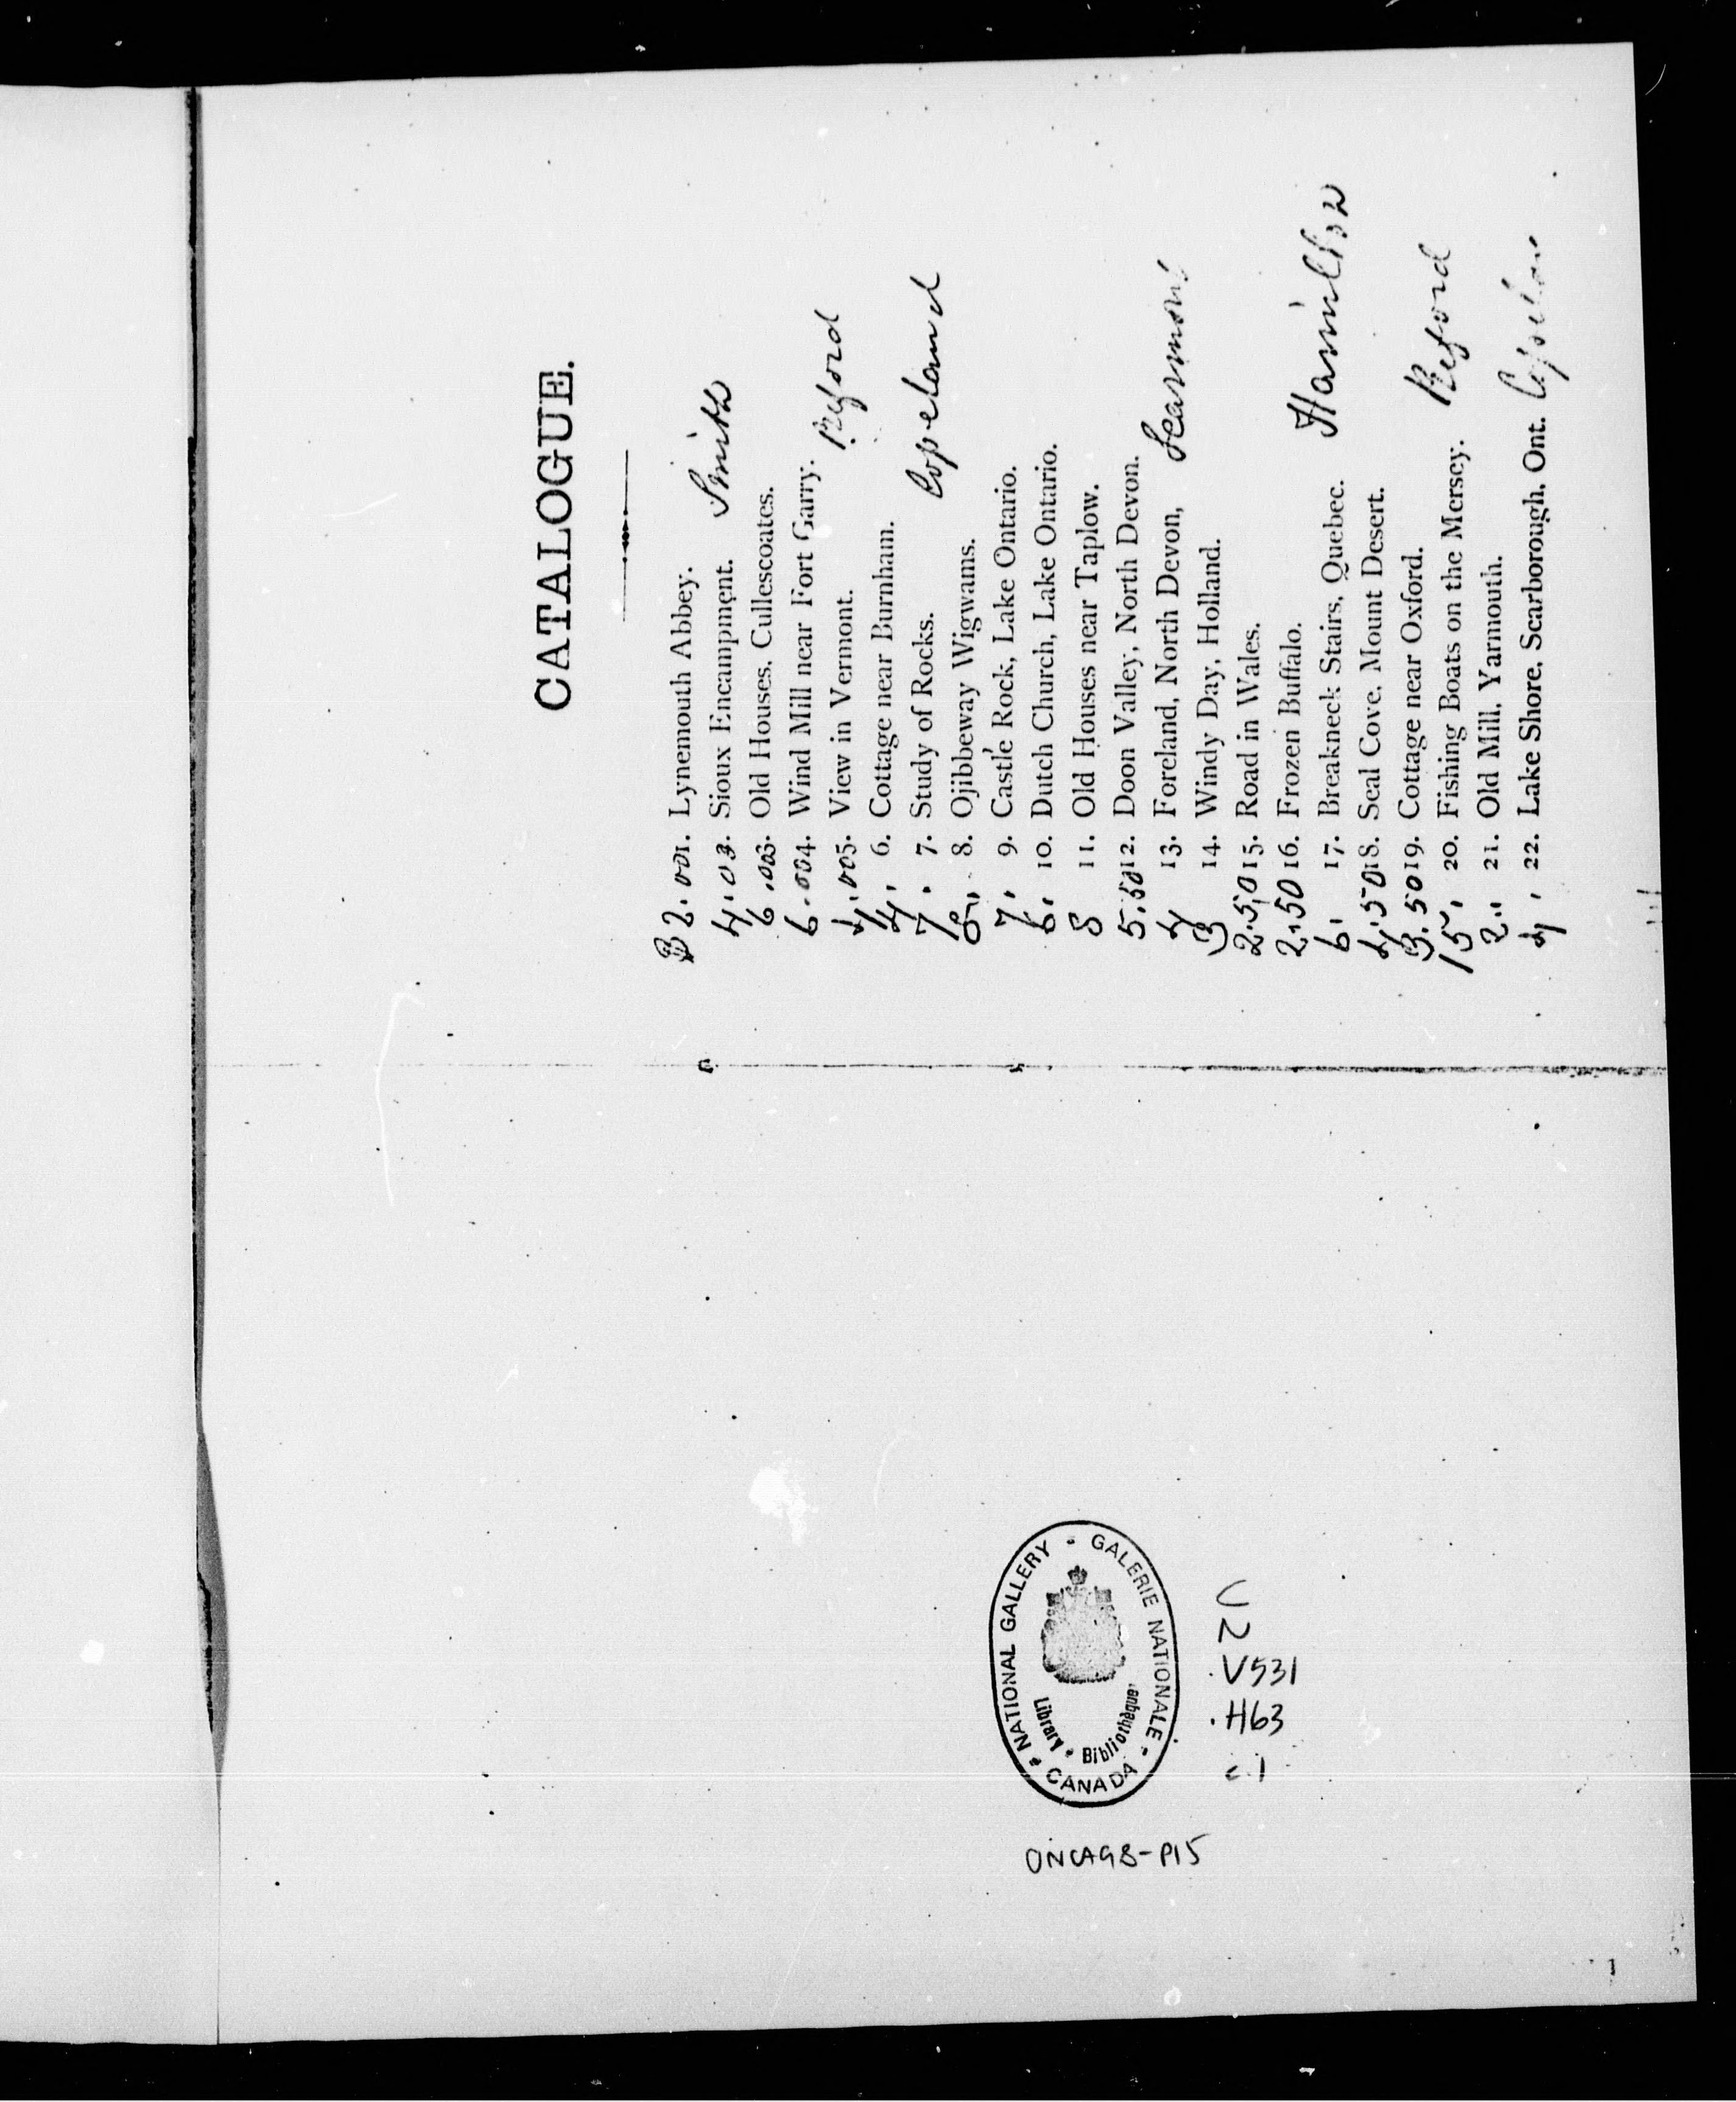 CATALOGUE.
$2.00 1. Lynemouth Abbey.
4. 00 2. Sioux Encampment. Smith
6.00 3. Old Houses, Cullescoates.
6.00 4. Wind Mill near Fort Garry. Reford
4.00 5. View in Vermont.
4. 6. Cottage near Burnham.
7. 7. Study of Rocks. Copeland
8. 8. Ojibbeway Wigwams.
7. 9. Castle Rock, Lake Ontario.
6. 10. Dutch Church, Lake Ontario.
8 11. Old Houses near Taplow.
5.50 12. Doon Valley, North Devon.
4 13. Foreland, North Devon,
3 14. Windy Day, Holland.
2.50 15. Road in Wales.
2.50 16. Frozen Buffalo.
6. 17. Breakneck Stairs, Quebec. Hamilton
4.50 18. Seal Cove, Mount Desert.
3.50 19. Cottage near Oxford.
15. 20. Fishing Boats on the Mersey. Reford
2.. 21. Old Mill, Yarmouth.
4. 22. Lake Shore, Scarborough, Ont.
NATIONAL GALLERY - GALERIE NATIONALE
Library • Bibliothèque
CANADA
U
2
.V531
.H63
c.1
ONCAGB-P15